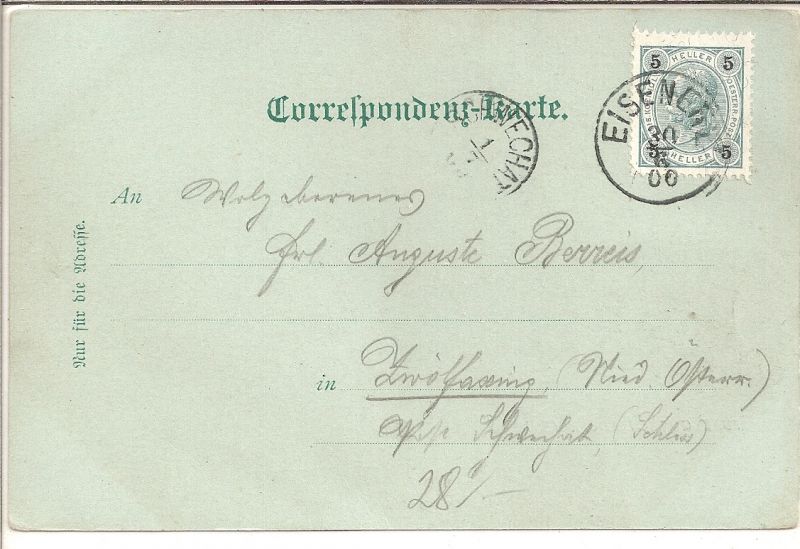 5 HELLER 5
OESTERR. POST
5 HELLER 5
EISEN
30
6
00
Correspondenz-Karte.
SCHWECHAT
1
7
An Wolgeborenes
Frl. Auguste Berreis,
Nur für die Adresse.
in Zwölfaxing, (Nied Österr.)
Schwechat, (Schloss)
28/-